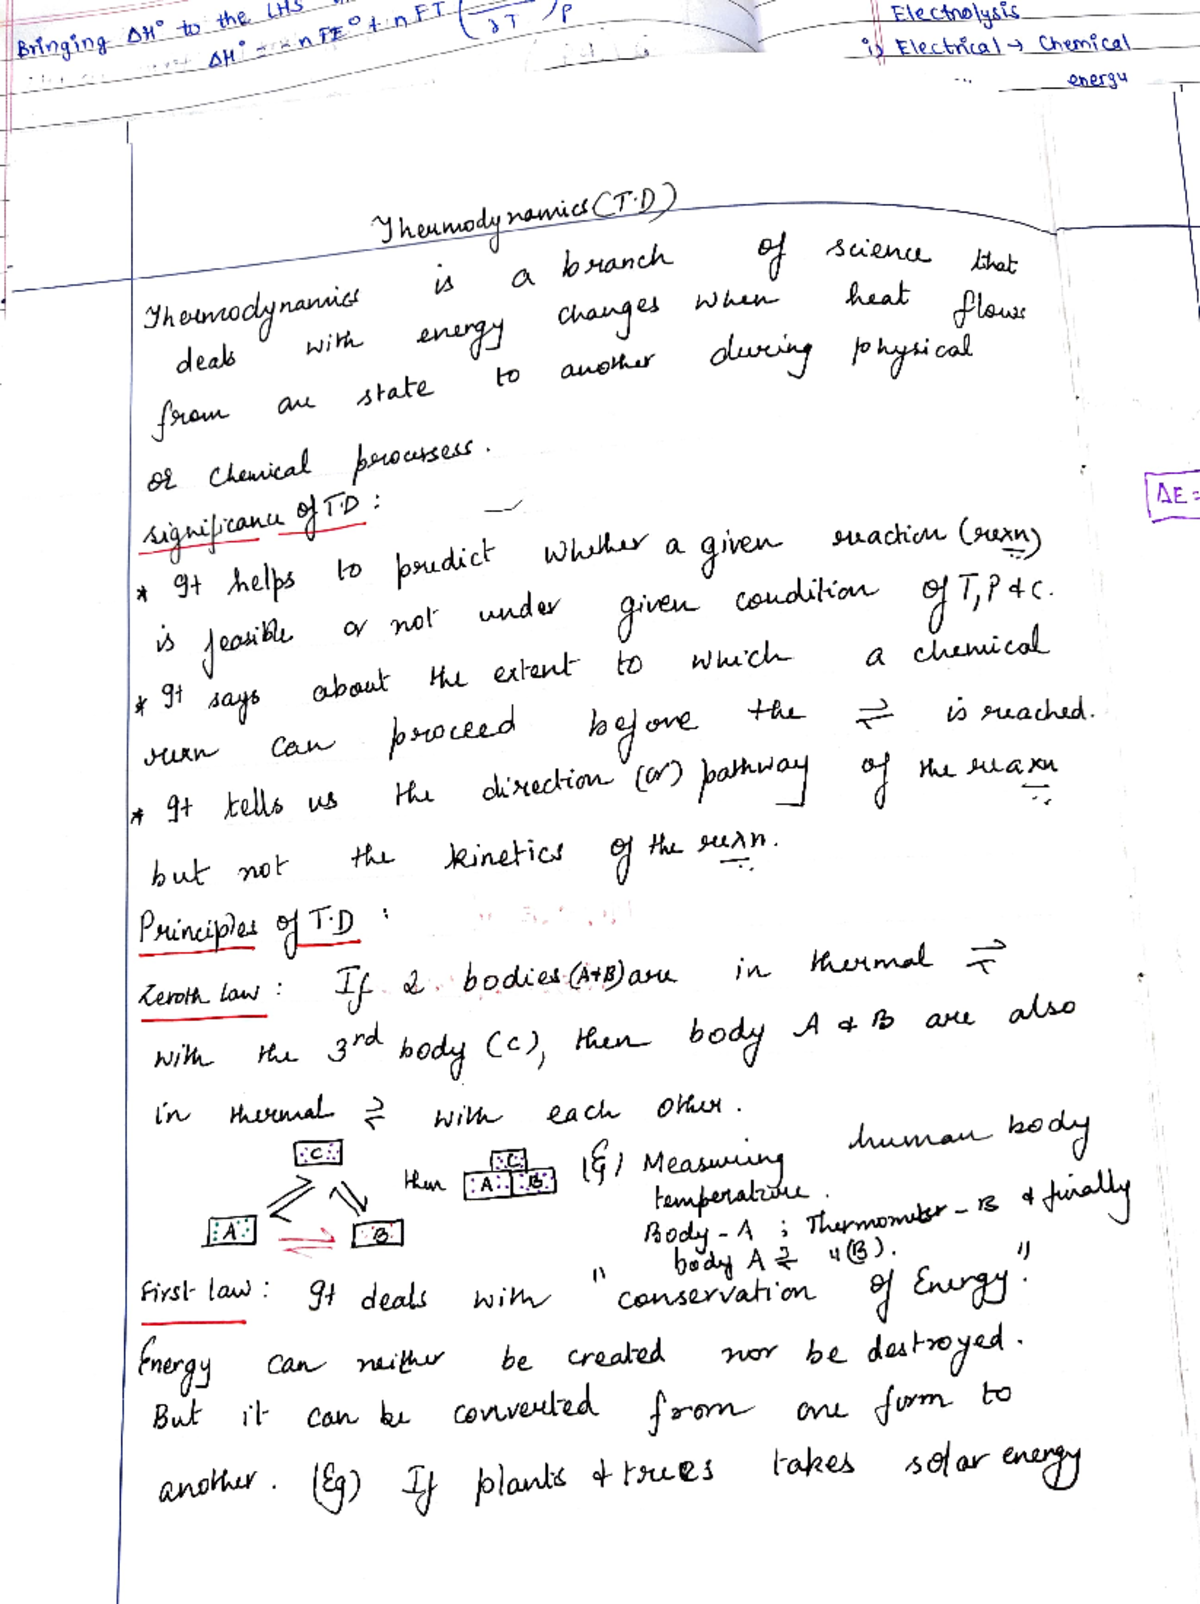 Bringing ΔH° to the LHS
ΔH° = - nFE° + nFT
Electrolysis
i) Electrical → Chemical
energy
Thermodynamics (T.D)
Thermodynamics is a branch of science that
deals with energy changes when heat flows
from one state to another during physical
or chemical processess.
ΔE =
significance of T.D :
* It helps to predict whether a given reaction (rexn)
is feasible or not under given condition of T, P & C.
* It says about the extent to which a chemical
rexn can proceed before the ⇌ is reached.
* It tells us the direction (or) pathway of the reaxn
but not the kinetics of the rexn.
Principles of T.D :
Zeroth law : If 2 bodies (A+B) are in thermal ⇌
with the 3rd body (C), then body A & B are also
in thermal ⇌ with each other.
C then C (Eg) Measuring human body
A B temperature.
A B Body - A ; Thermometer - B & finally
body A ⇌ "(B).
First law : It deals with "conservation of Energy."
Energy can neither be created nor be destroyed.
But it can be converted from one form to
another. (Eg) If plants & trees takes solar energy